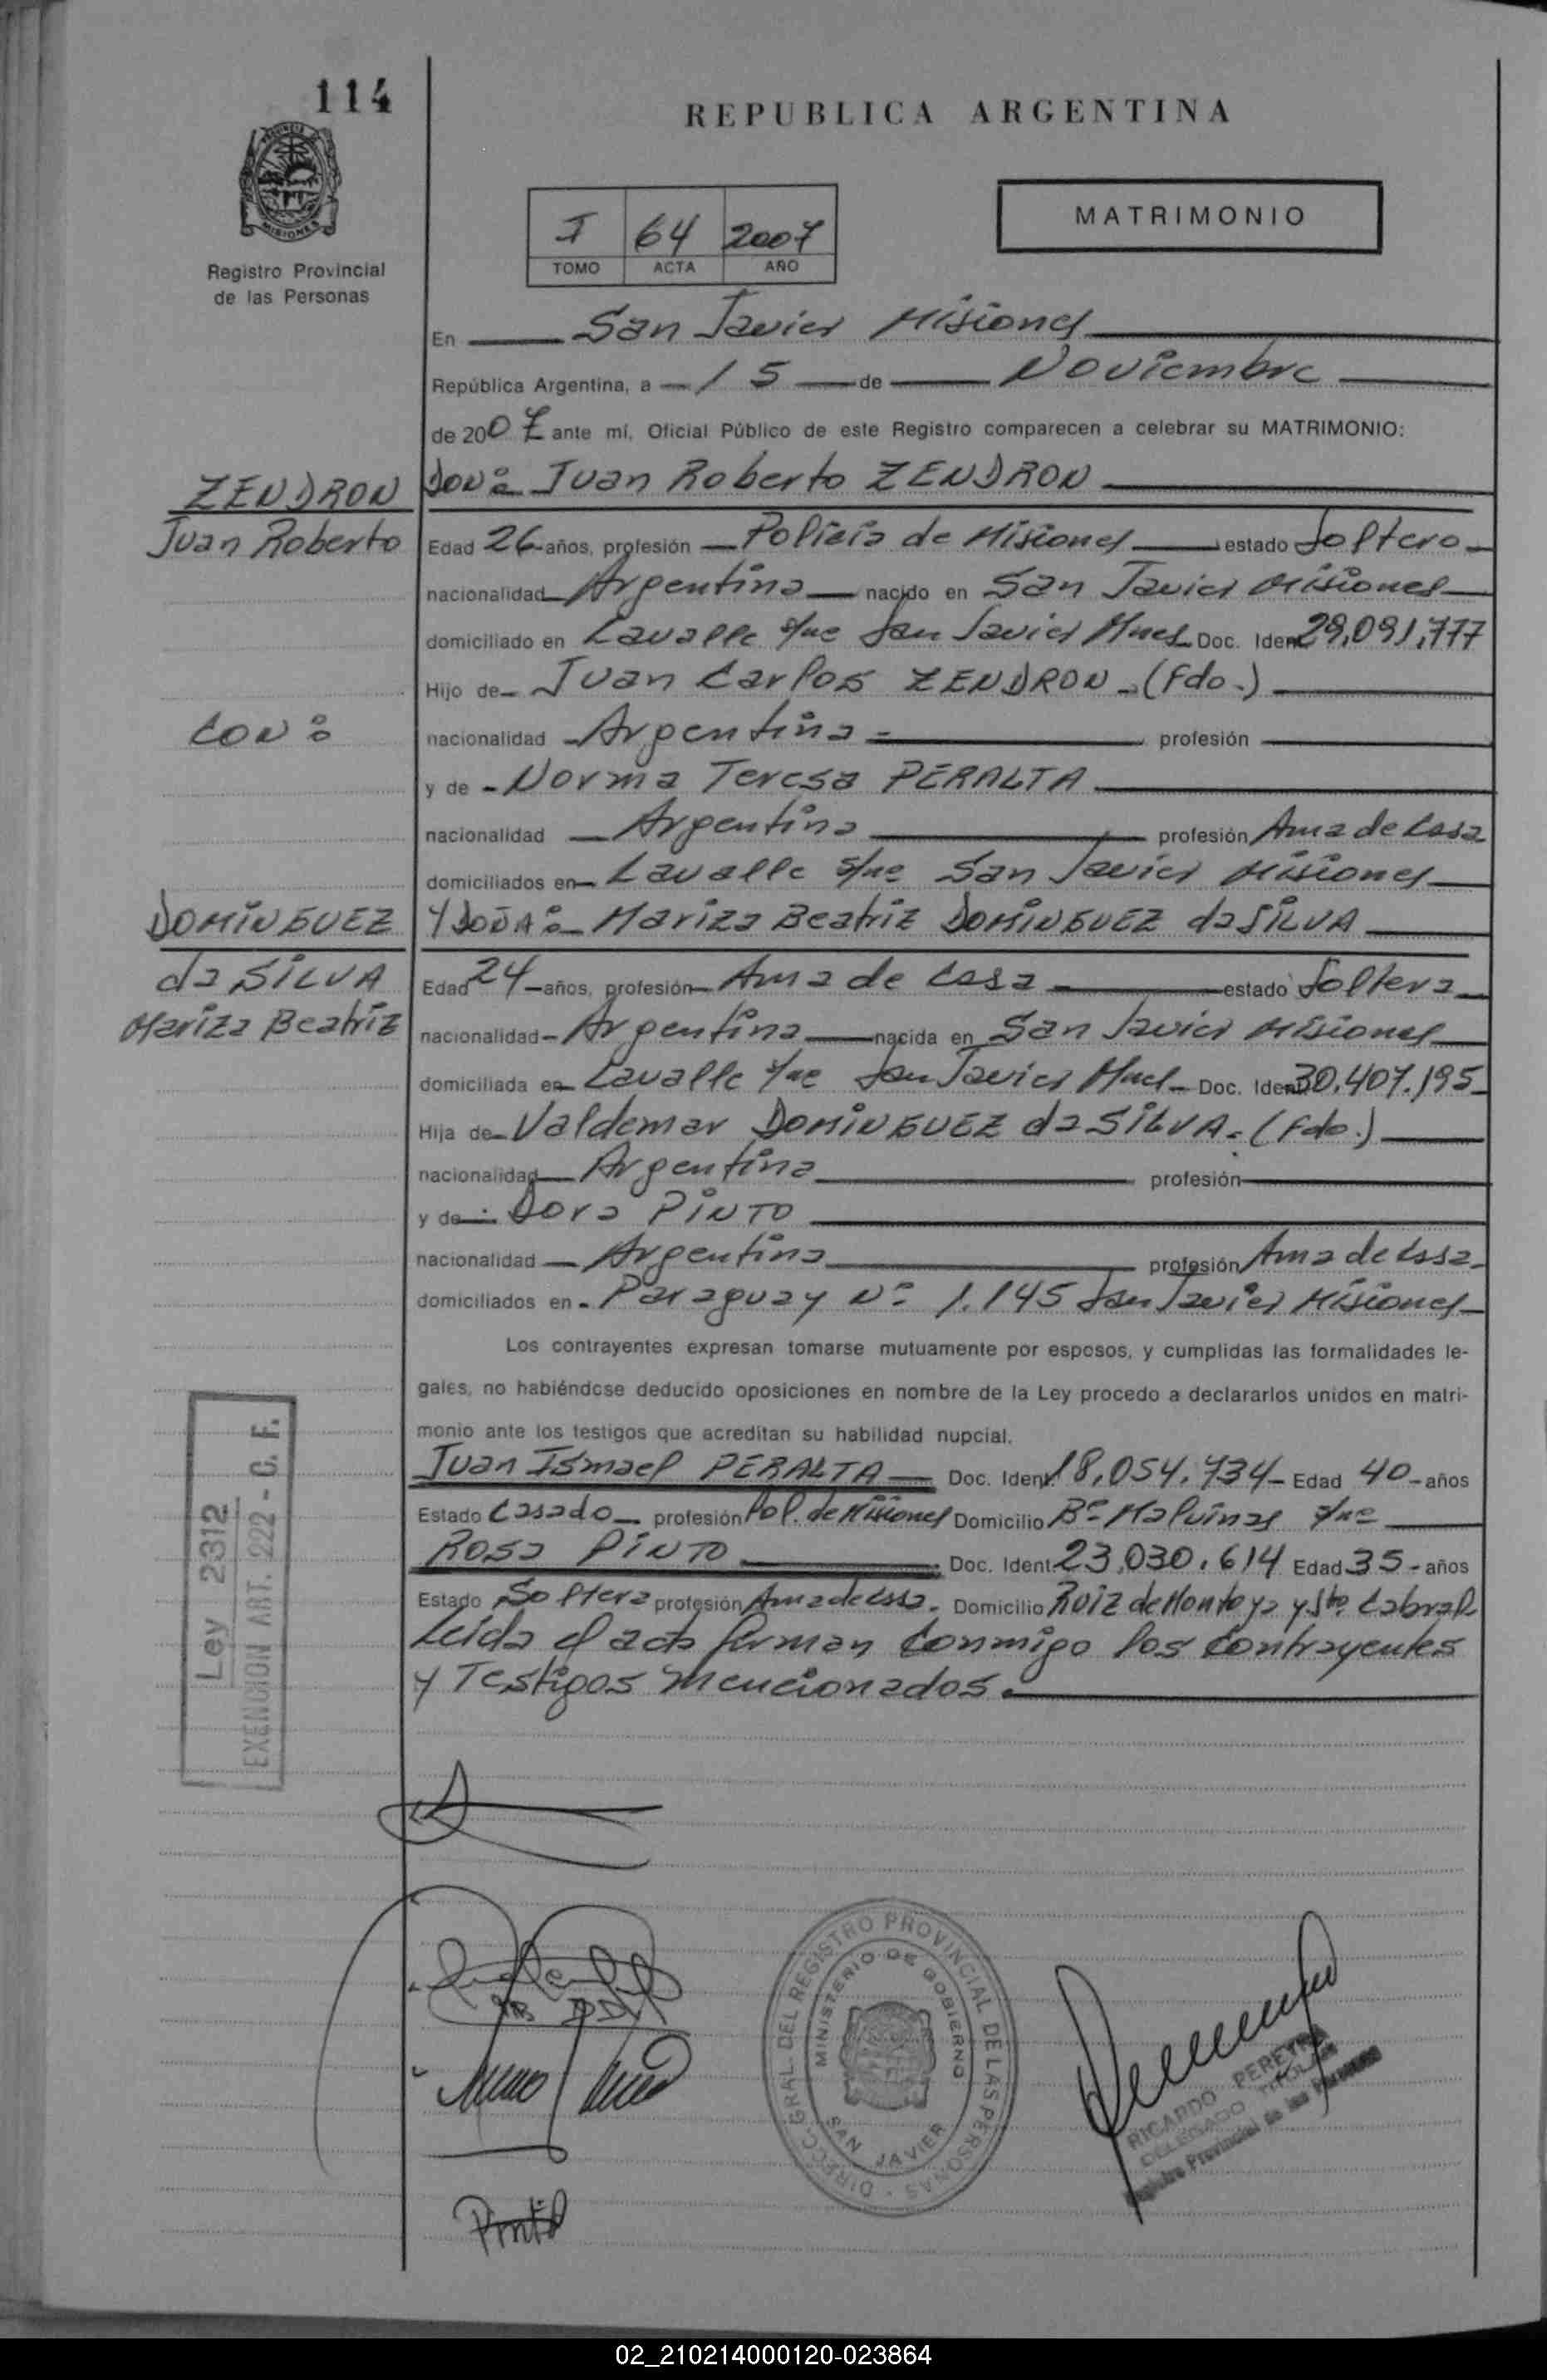 114
REPUBLICA ARGENTINA
MATRIMONIO
I 64 2007
TOMO ACTA AÑO
PROVINCIA
MISIONES
Registro Provincial
de las Personas
En San Javier Misiones
República Argentina, a 15 de Noviembre
de 2007 ante mí, Oficial Público de este Registro comparecen a celebrar su MATRIMONIO:
ZENDRON
Juan Roberto
DON: Juan Roberto ZENDRON
Edad 26 años, profesión Policía de Misiones estado Soltero
nacionalidad Argentina nacido en San Javier Misiones
domiciliado en Lavalle s/ne San Javier Mnes Doc. Ident 29.091.777
Hijo de Juan Carlos ZENDRON (Fdo.)
CON:
nacionalidad Argentina profesión
y de Norma Teresa PERALTA
nacionalidad Argentina profesión Ama de Casa
domiciliados en Lavalle s/ne San Javier Misiones
DOMINGUEZ
da SILVA
Mariza Beatriz
Y DOÑA: Mariza Beatriz DOMINGUEZ da SILVA
Edad 24 años, profesión Ama de Casa estado Soltera
nacionalidad Argentina nacida en San Javier Misiones
domiciliada en Lavalle s/ne San Javier Mnes Doc. Ident 30.407.195
Hija de Valdemar DOMINGUEZ da SILVA. (Fdo.)
nacionalidad Argentina profesión
y de Dora PINTO
nacionalidad Argentina profesión Ama de Casa
domiciliados en Paraguay Nº 1.145 San Javier Misiones
Los contrayentes expresan tomarse mutuamente por esposos, y cumplidas las formalidades le-
gales, no habiéndose deducido oposiciones en nombre de la Ley procedo a declararlos unidos en matri-
monio ante los testigos que acreditan su habilidad nupcial.
Juan Ismael PERALTA Doc. Ident. 18.054.734 Edad 40 años
Estado Casado profesión Pol. de Misiones Domicilio Bº Malvinas s/ne
Rosa PINTO Doc. Ident. 23.030.614 Edad 35 años
Estado Soltera profesión Ama de Casa. Domicilio Ruiz de Montoya y Sto. Cabral
Leída el acta firman conmigo los contrayentes
y Testigos mencionados.
Ley 2312
EXENCION ART. 222 - C. F.
DIRECC. GRAL. DEL REGISTRO PROVINCIAL DE LAS PERSONAS
MINISTERIO DE GOBIERNO
SAN JAVIER
RICARDO PEREYRA
DELEGADO TITULAR
Registro Provincial de las Personas
02_210214000120-023864